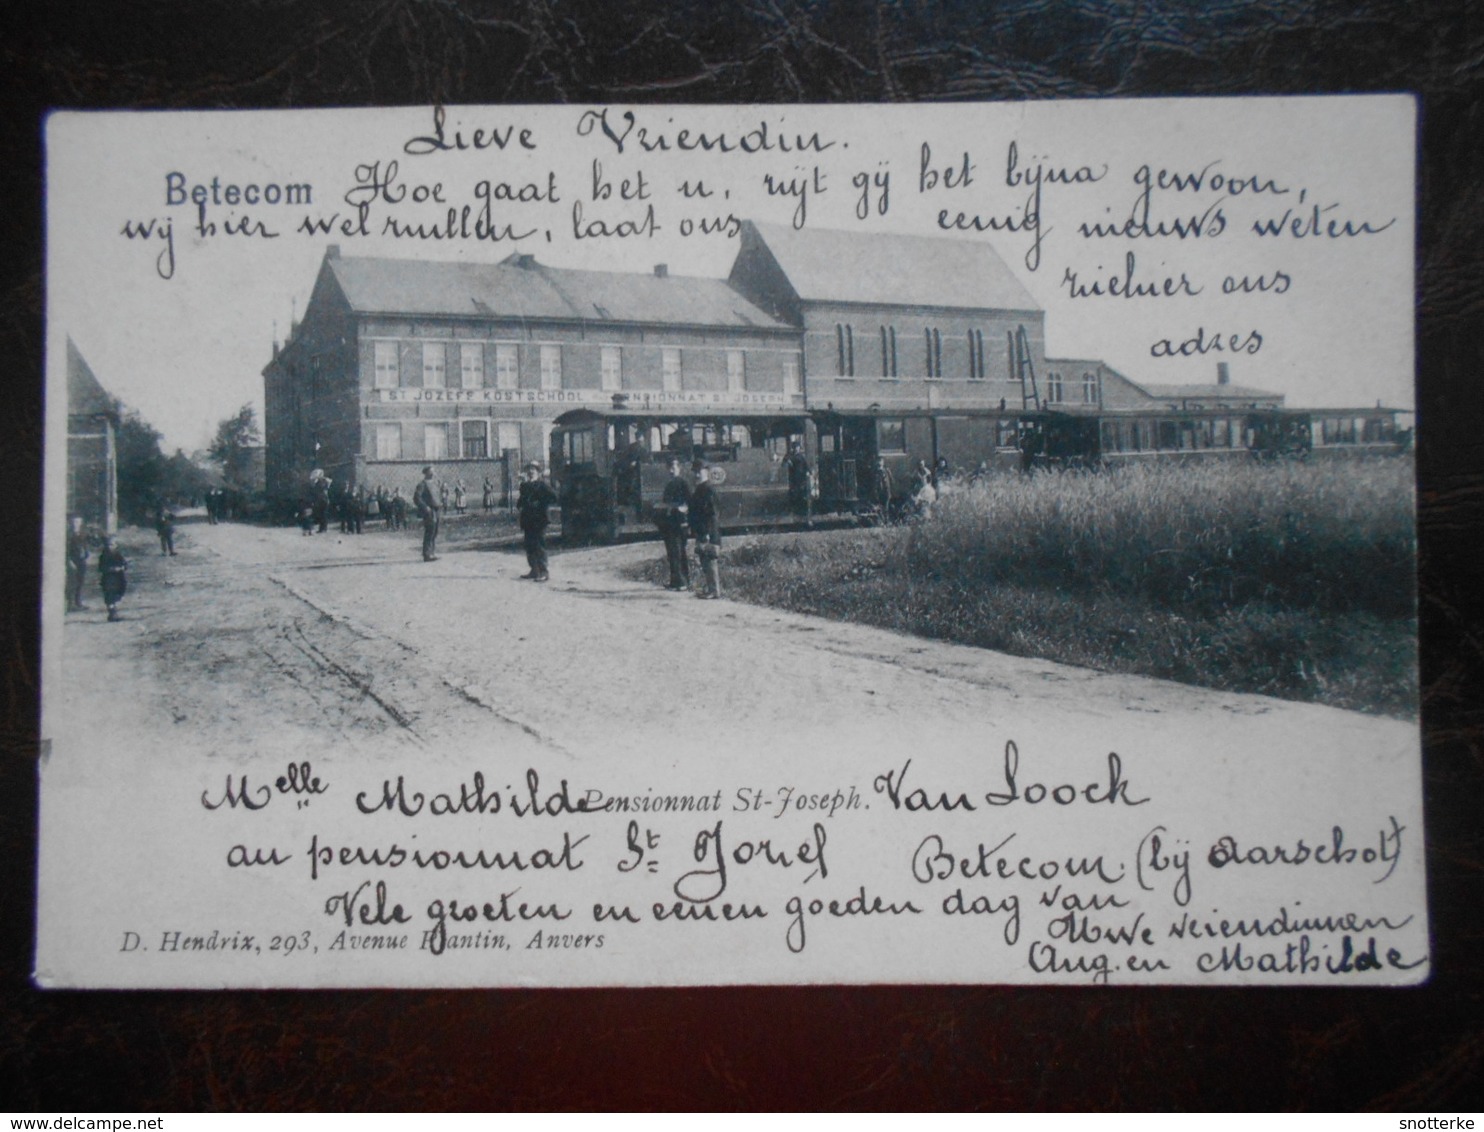 Lieve Vriendin.
Betecom Hoe gaat het u, zijt gij het bijna gewoon,
wij hier wel zullen, laat ons eenig nieuws weten
ziehier ons
adres
ST JOZEFS KOSTSCHOOL PENSIONNAT ST JOSEPH
Melle Mathilde Pensionnat St-Joseph. Van Loock
au pensionnat St. Jozef Betecom. (bij Aarschot)
Vele groeten en eenen goeden dag van
Uwe vriendinnen
D. Hendrix, 293, Avenue Plantin, Anvers
Aug. en Mathilde
www.delcampe.net
snotterke